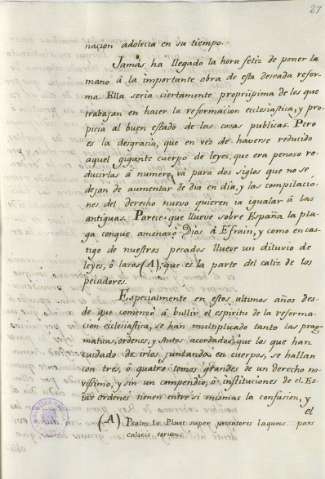 27
nacion adolecia en su tiempo.
Jamas ha llegado la hora feliz de poner la
mano à la importante obra de esta deseada refor-
ma. Ella seria ciertamente propriisima de los que
trabajan en hacer la reformacion eclesiastica, y pro-
picia al buen estado de las casas publicas. Pero
es la desgracia, que en vez de haverse reducido
aquel gigante cuerpo de leyes, que era penoso re-
ducirlas à numero, va para dos siglos que no se
dejan de aumentar de dia en dia, y las compilacio-
nes del derecho nuevo quieren ia igualar à las
antiguas. Parece que llueve sobre España la pla-
ga conque amenazó Dios à Efrain, y como en cas-
tigo de nuestros pecados llueve un diluvio de
leyes, ò lazos (A), que es la parte del caliz de los
pecadores.
Especialmente en estos ultimos años des-
de que comenzò à bullir el espiritu de la reforma-
cion eclesiastica, se han multiplicado tanto las prag-
maticas, ordenes, y Autos acordados, que los que han
cuidado de irlos juntando en cuerpos, se hallan
con tres, ò quatro tomos grandes de un derecho no-
visimo, y sin un compendio, ò instituciones de el. Es-
tas ordenes tienen entre si mismas la confusion, y
el
(A) Psalm. 10. Pluet super peccatores laqueos pars
calicis eorum.